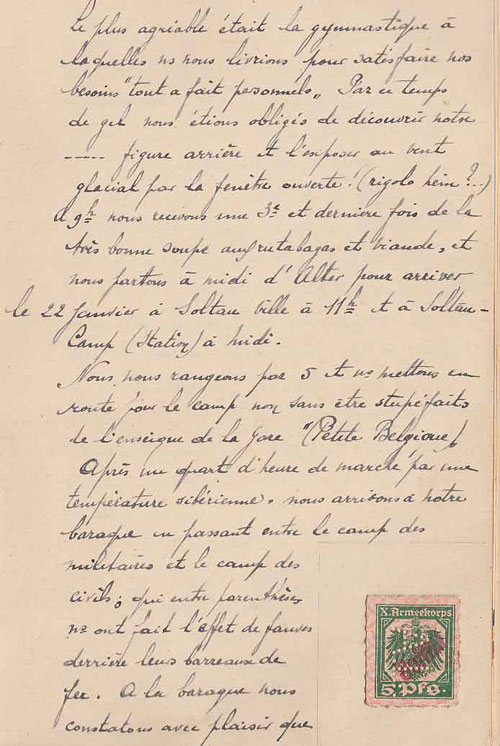 Le plus agréable était la gymnastique à
laquelles ns nous livrions pour satisfaire nos
besoins "tout a fait personnels„ Par ce temps
de gel nous étions obligés de découvrir notre
----- figure arrière et l'exposer au vent
glacial par la fenêtre ouverte! (rigolo hein?...)
A 9h nous recevons une 3e et dernière fois de la
très bonne soupe aux rutabagas et viande, et
nous partons à midi d'Alter pour arriver
le 22 Janvier à Soltau ville à 11h et à Soltau-
Camp (Station) à midi.
Nous nous rangeons par 5 et ns mettons en
route pour le camp non sans être stupéfaits
de l'enseigne de la Gare "(Petite Belgique)„
Après un quart d'heure de marche par une
température sibérienne, nous arrivons à notre
baraque en passant entre le camp des
militaires et le camp des
civils; qui entre parenthèses
ns ont fait l'effet de fauves
derrière leurs barreaux de
fer. A la baraque nous
constatons avec plaisir que
X. Armeekorps
5 Pfg.